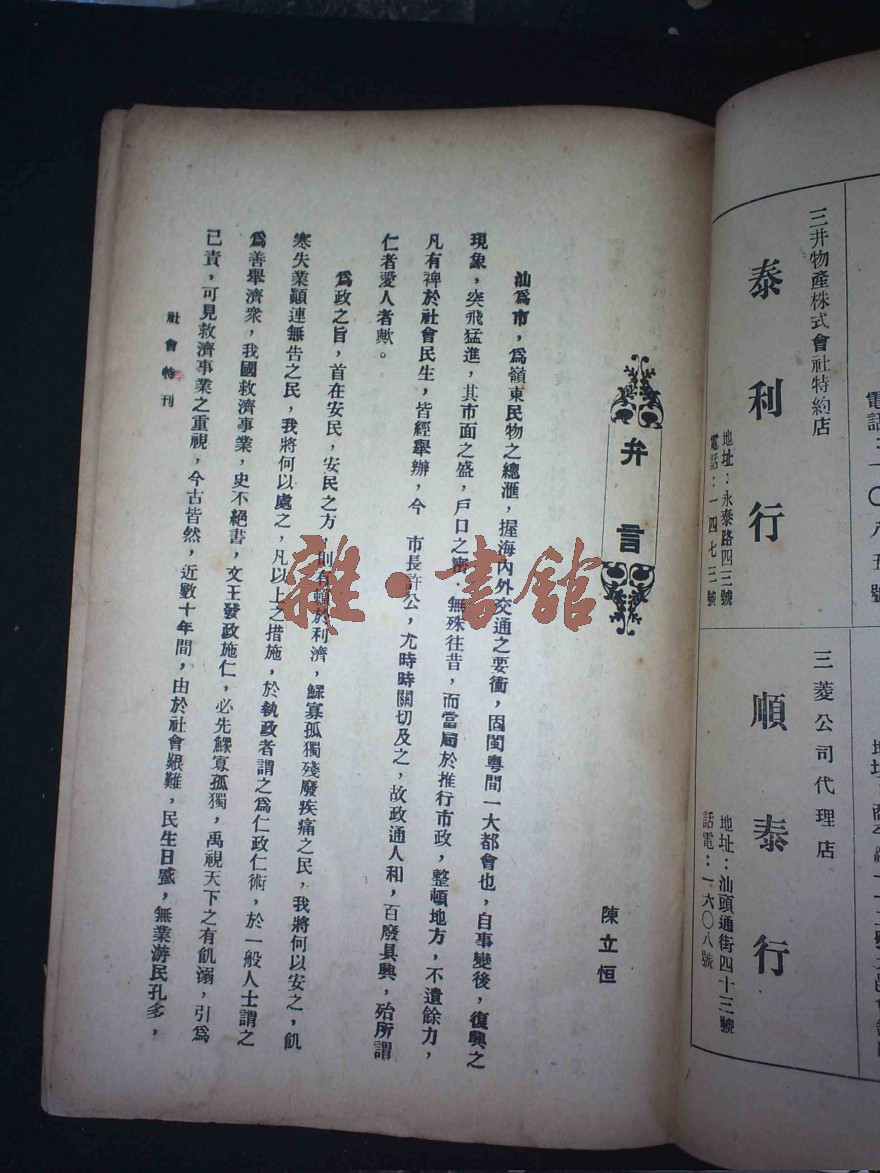 三井物產株式會社特約店
泰利行
地址：永泰路四三號
電話：一四七三號
三菱公司代理店
順泰行
地址：汕頭通街四十三號
話電：一六〇八號
弁言
陳立恒
汕爲市，爲嶺東民物之總滙，握海內外交通之要衝，固閩粵間一大都會也，自事變後，復興之
現象，突飛猛進，其市面之盛，戶口之密，無殊往昔，而當局於推行市政，整頓地方，不遺餘力，
凡有裨於社會民生，皆經舉辦，今　市長許公，尤時時關切及之，故政通人和，百廢具興，殆所謂
仁者愛人者歟。
爲政之旨，首在安民，安民之方，則有賴於利濟，鰥寡孤獨殘廢疾痛之民，我將何以安之，飢
寒失業顚連無告之民，我將何以處之，凡以上之措施，於執政者謂之爲仁政仁術，於一般人士謂之
爲善舉濟衆，我國救濟事業，史不絕書，文王發政施仁，必先鰥寡孤獨，禹視天下之有飢溺，引爲
已責，可見救濟事業之重視，今古皆然，近數十年間，由於社會艱難，民生日蹙，無業游民孔多，
社會特刊
雜·書舘